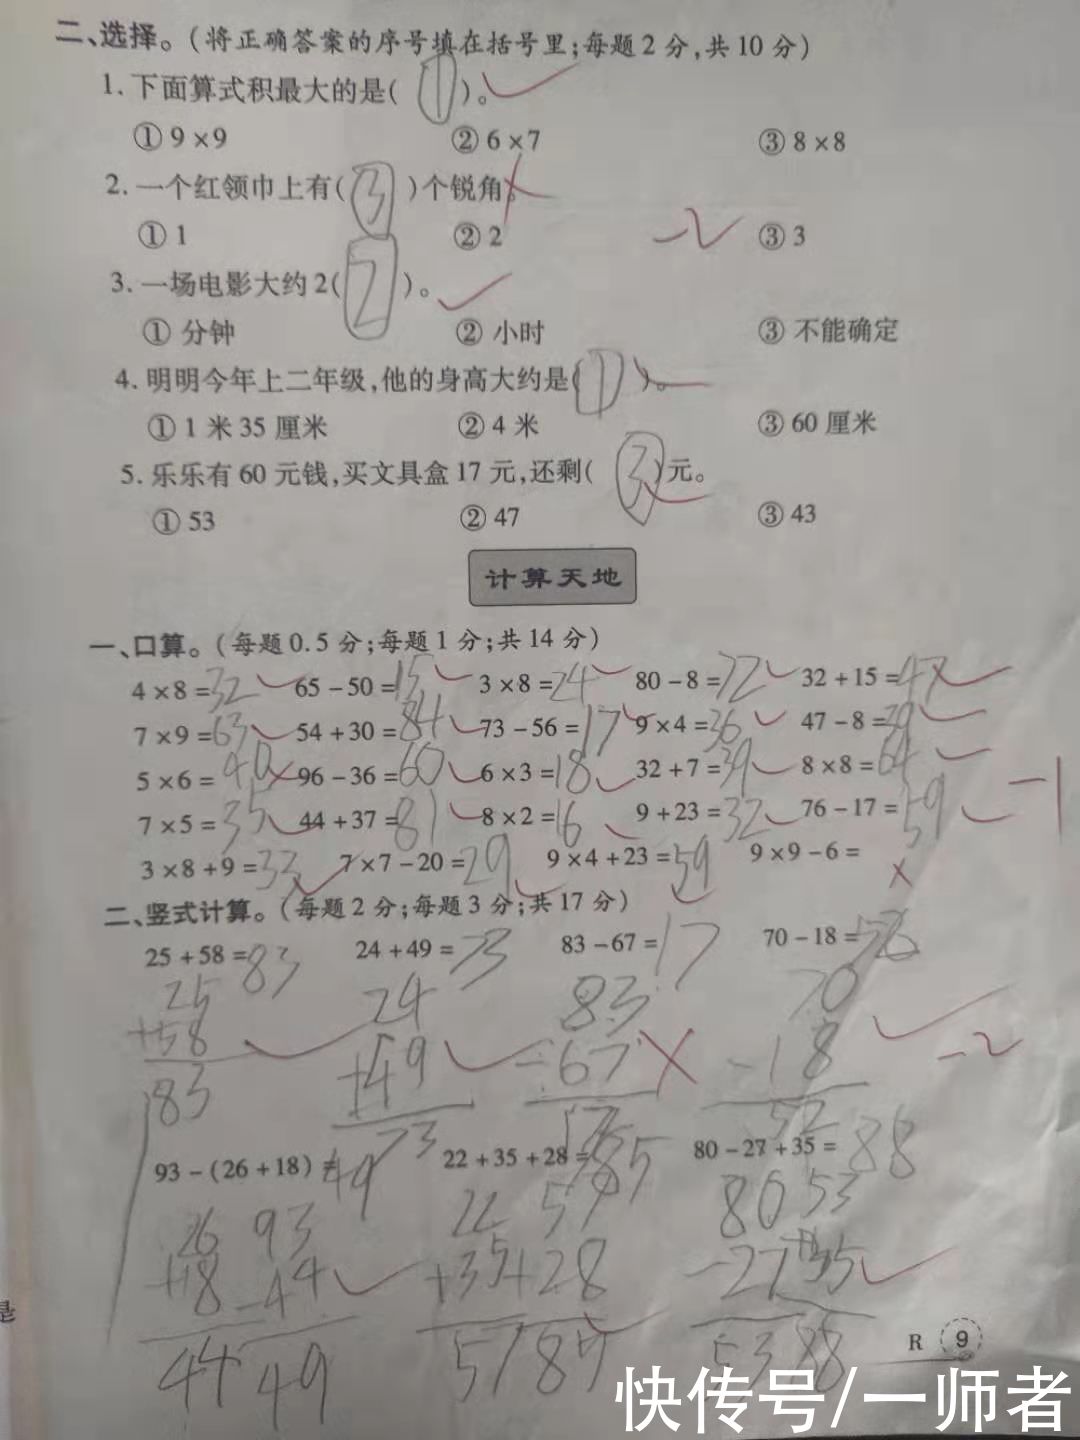 二、选择。(将正确答案的序号填在括号里;每题2分,共10分)
1. 下面算式积最大的是( ① )。
① 9×9 ② 6×7 ③ 8×8
2. 一个红领巾上有( ③ )个锐角。
① 1 ② 2 ③ 3
-2
3. 一场电影大约2( ② )。
① 分钟 ② 小时 ③ 不能确定
4. 明明今年上二年级,他的身高大约是( ① )。
① 1米35厘米 ② 4米 ③ 60厘米
5. 乐乐有60元钱,买文具盒17元,还剩( ③ )元。
① 53 ② 47 ③ 43
计算天地
一、口算。(每题0.5分;每题1分;共14分)
4×8=32 65-50=15 3×8=24 80-8=72 32+15=47
7×9=63 54+30=84 73-56=17 9×4=36 47-8=39
5×6=40 96-36=60 6×3=18 32+7=39 8×8=64
-1
7×5=35 44+37=81 8×2=16 9+23=32 76-17=59
3×8+9=33 7×7-20=29 9×4+23=59 9×9-6=
二、竖式计算。(每题2分;每题3分;共17分)
25+58=83 24+49=73 83-67=17 70-18=52
25 24 83 70
+58 +49 -67 -18
-2
83 73 17 52
93-(26+18)=49 22+35+28=85 80-27+35=88
26 93 22 57 80 53
+18 -44 +35 +28 -27 +35
44 49 57 85 53 88
是
R 9
快传号/一师者